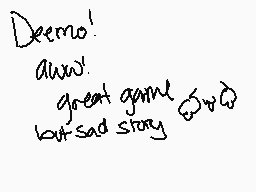 Deemo!
aww!
great game
but sad story